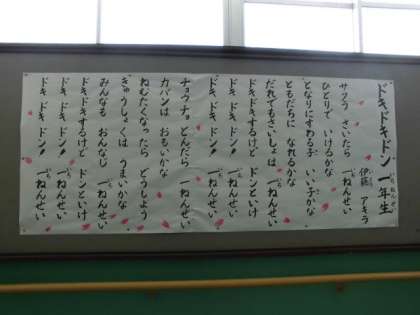 ドキドキドン 一年生
伊藤 アキラ
サクラ さいたら 一ねんせい
ひとりで いけるかな
となりにすわる子 いい子かな
ともだちに なれるかな
だれでもさいしょは 一ねんせい
ドキドキするけど ドンといけ
ドキ ドキ ドン! 一ねんせい
ドキ ドキ ドン! 一ねんせい
チョウチョ とんだら 一ねんせい
カバンは おもいかな
ねむたくなったら どうしよう
きゅうしょくは うまいかな
みんなも おんなじ 一ねんせい
ドキドキするけど ドンといけ
ドキ ドキ ドン! 一ねんせい
ドキ ドキ ドン! 一ねんせい